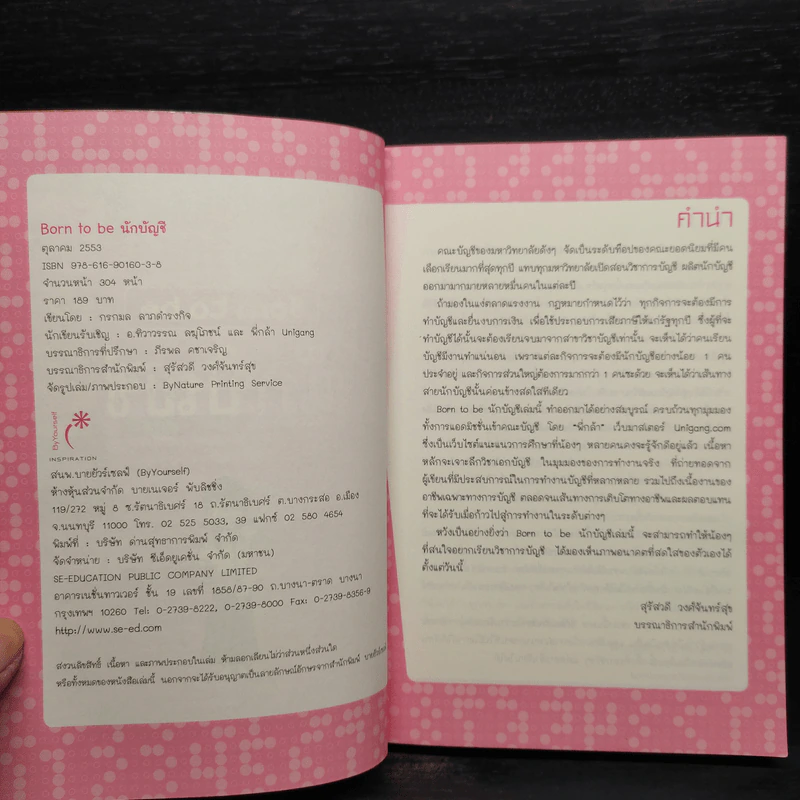 Born to be นักบัญชี
ตุลาคม 2553
ISBN 978-616-90160-3-8
จำนวนหน้า 304 หน้า
ราคา 189 บาท
เขียนโดย : กรกมล ลาภดำรงกิจ
นักเขียนรับเชิญ : อ.ทิวาวรรณ ลฆุโภชน์ และ พี่กล้า Unigang
บรรณาธิการที่ปรึกษา : ภีรพล คชาเจริญ
บรรณาธิการสำนักพิมพ์ : สุรัสวดี วงศ์จันทร์สุข
จัดรูปเล่ม/ภาพประกอบ : ByNature Printing Service
ByYourself
INSPIRATION
สนพ.บายยัวร์เซลฟ์ (ByYourself)
ห้างหุ้นส่วนจำกัด บายเนเจอร์ พับลิชชิ่ง
119/272 หมู่ 8 ซ.รัตนาธิเบศร์ 18 ถ.รัตนาธิเบศร์ ต.บางกระสอ อ.เมือง
จ.นนทบุรี 11000 โทร. 02 525 5033, 39 แฟกซ์ 02 580 4654
พิมพ์ที่ : บริษัท ด่านสุทธาการพิมพ์ จำกัด
จัดจำหน่าย : บริษัท ซีเอ็ดยูเคชั่น จำกัด (มหาชน)
SE-EDUCATION PUBLIC COMPANY LIMITED
อาคารเนชั่นทาวเวอร์ ชั้น 19 เลขที่ 1858/87-90 ถ.บางนา-ตราด บางนา
กรุงเทพฯ 10260 Tel: 0-2739-8222, 0-2739-8000 Fax: 0-2739-8356-9
http://www.se-ed.com
สงวนลิขสิทธิ์ เนื้อหา และภาพประกอบในเล่ม ห้ามลอกเลียนไม่ว่าส่วนหนึ่งส่วนใด
หรือทั้งหมดของหนังสือเล่มนี้ นอกจากจะได้รับอนุญาตเป็นลายลักษณ์อักษรจากสำนักพิมพ์
คำนำ
คณะบัญชีของมหาวิทยาลัยดังๆ จัดเป็นระดับท็อปของคณะยอดนิยมที่มีคน
เลือกเรียนมากที่สุดทุกปี แทบทุกมหาวิทยาลัยเปิดสอนวิชาการบัญชี ผลิตนักบัญชี
ออกมามากมายหลายหมื่นคนในแต่ละปี
ถ้ามองในแง่ตลาดแรงงาน กฎหมายกำหนดไว้ว่า ทุกกิจการจะต้องมีการ
ทำบัญชีและยื่นงบการเงิน เพื่อใช้ประกอบการเสียภาษีให้แก่รัฐทุกปี ซึ่งผู้ที่จะ
ทำบัญชีได้นั้นจะต้องเรียนจบมาจากสาขาวิชาบัญชีเท่านั้น จะเห็นได้ว่าคนเรียน
บัญชีมีงานทำแน่นอน เพราะแต่ละกิจการจะต้องมีนักบัญชีอย่างน้อย 1 คน
ประจำอยู่ และกิจการส่วนใหญ่ต้องการมากกว่า 1 คนซะด้วย จะเห็นได้ว่าเส้นทาง
สายนักบัญชีนั้นค่อนข้างสดใสทีเดียว
Born to be นักบัญชีเล่มนี้ ทำออกมาได้อย่างสมบูรณ์ ครบถ้วนทุกมุมมอง
ทั้งการแอดมิชชั่นเข้าคณะบัญชี โดย "พี่กล้า" เว็บมาสเตอร์ Unigang.com
ซึ่งเป็นเว็บไซต์แนะแนวการศึกษาที่น้องๆ หลายคนคงจะรู้จักดีอยู่แล้ว เนื้อหา
หลักจะเจาะลึกวิชาเอกบัญชี ในมุมมองของการทำงานจริง ที่ถ่ายทอดจาก
ผู้เขียนที่มีประสบการณ์ในการทำงานบัญชีที่หลากหลาย รวมไปถึงเนื้องานของ
อาชีพเฉพาะทางการบัญชี ตลอดจนเส้นทางการเติบโตทางอาชีพและผลตอบแทน
ที่จะได้รับเมื่อก้าวไปสู่การทำงานในระดับต่างๆ
หวังเป็นอย่างยิ่งว่า Born to be นักบัญชีเล่มนี้ จะสามารถทำให้น้องๆ
ที่สนใจอยากเรียนวิชาการบัญชี ได้มองเห็นภาพอนาคตที่สดใสของตัวเองได้
ตั้งแต่วันนี้
สุรัสวดี วงศ์จันทร์สุข
บรรณาธิการสำนักพิมพ์